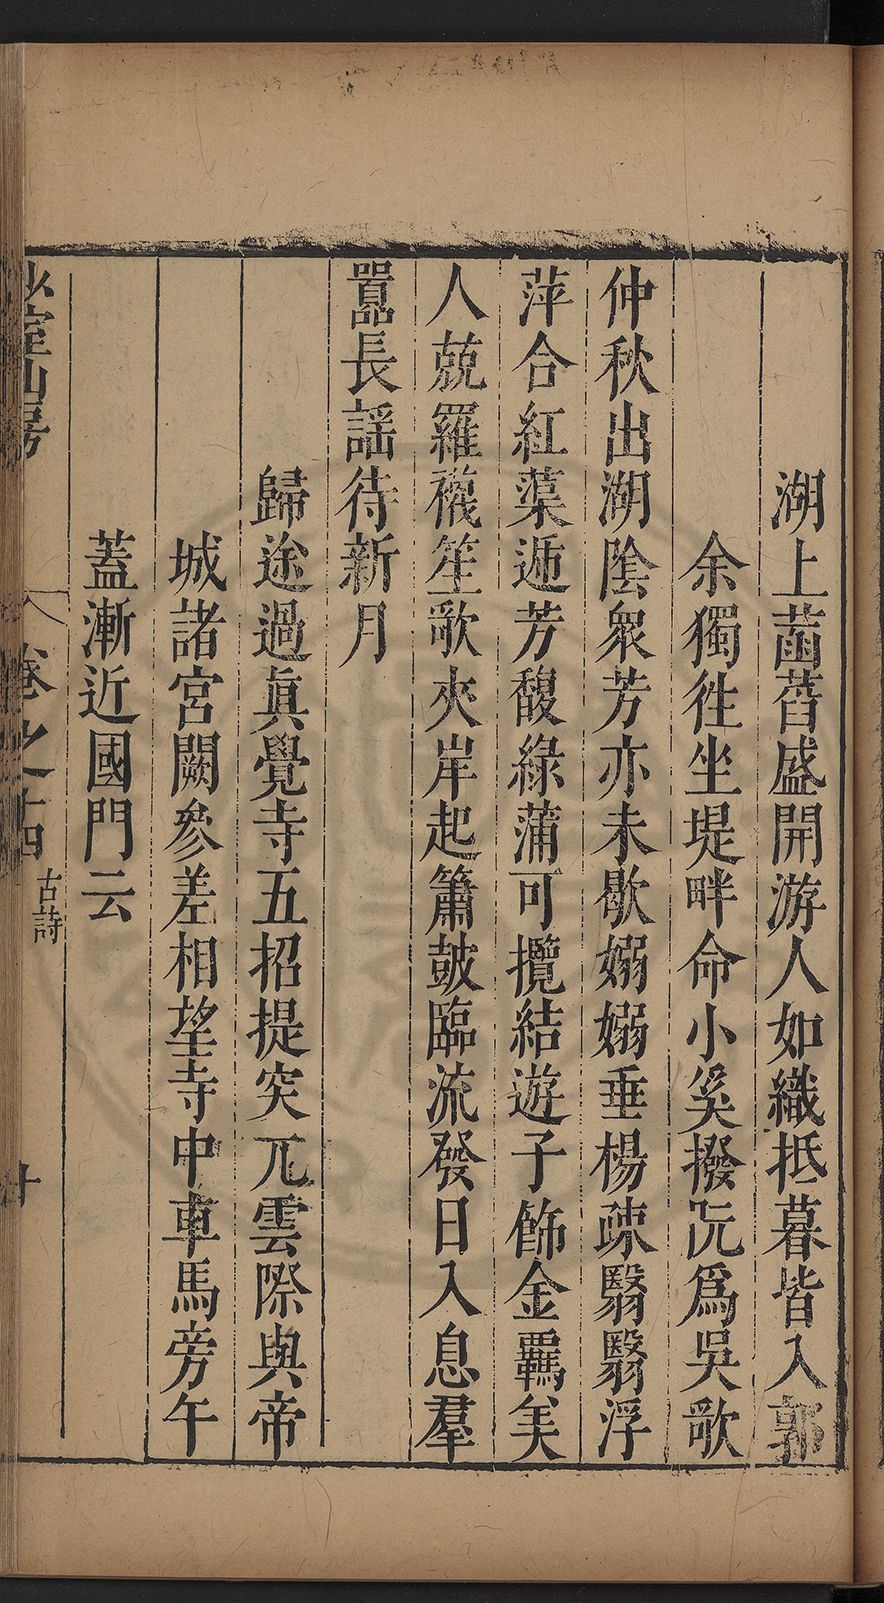 湖上菡萏盛開游人如織抵暮皆入郭
余獨徃坐堤畔命小奚撥阮爲吳歌
仲秋出湖陰衆芳亦未歇嫋嫋垂楊疎翳翳浮
萍合紅蕖遞芳馥綠蒲可攬結遊子飾金羈美
人兢羅襪笙歌夾岸起簫皷臨流發日入息羣
囂長謡待新月
歸途過眞覺寺五招提突兀雲際與帝
城諸宮闕參差相望寺中車馬旁午
蓋漸近國門云
少室山房
卷之十四
古詩
十